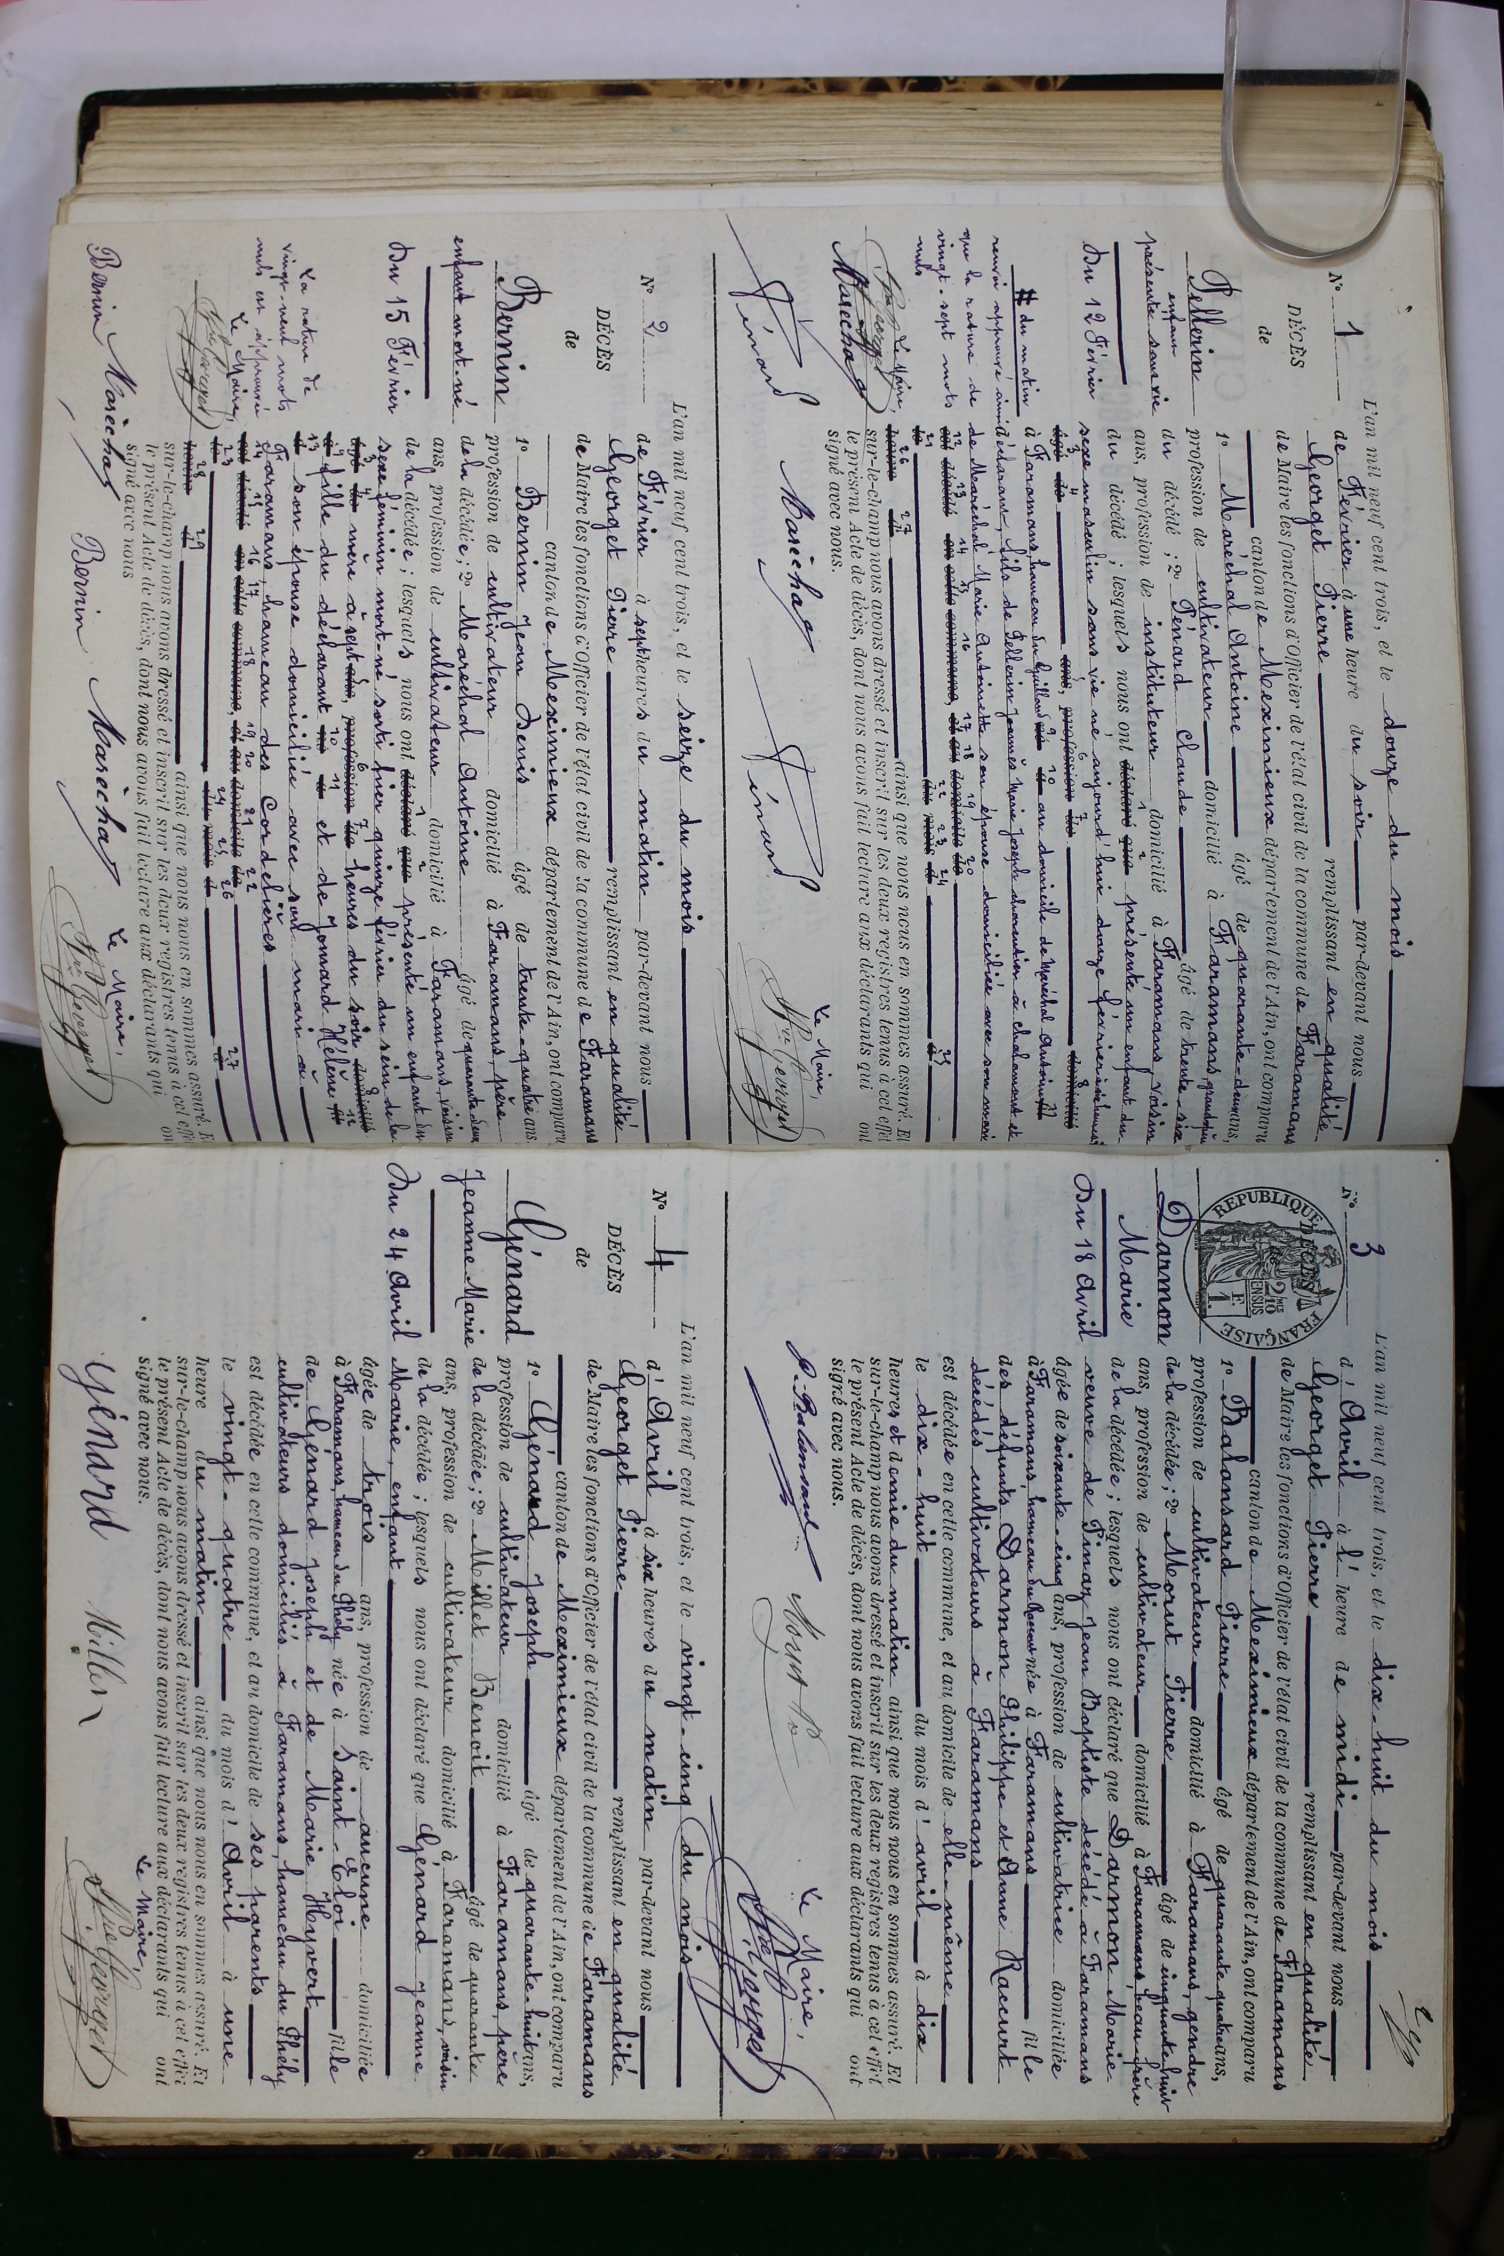 N° 1
DÉCÈS
de
Pellerin
enfant
présenté sans vie
Du 12 Février
# du matin
renvoi approuvé ainsi
que la rature de
vingt-sept mots
nuls
Le Maire,
Marechal
L'an mil neuf cent trois, et le douze du mois
de Février à une heure du soir par-devant nous
Georget Pierre remplissant en qualité
de Maire les fonctions d'Officier de l'état civil de la commune de Faramans
canton de Meximieux département de l'Ain, ont comparu
1° Maréchal Antoine âgé de quarante-deux ans,
profession de cultivateur domicilié à Faramans
du décédé ; 2° Pénard Claude âgé de trente-six
ans, profession de instituteur domicilié à Faramans, voisin
du décédé ; lesquels nous ont déclaré que présenté un enfant du
sexe masculin sans vie né aujourd'hui douze février
âgé de ans, profession de domicilié
à Faramans, hameau du au domicile de Maréchal Antoine
déclarant, fils de Pellerin Marie Joseph charpentier à Chalamont et
de Maréchal Marie Antoinette son épouse domiciliée avec son mari
est décédé en cette commune, et au domicile de
le du mois d
heures ainsi que nous nous en sommes assuré. Et
sur-le-champ nous avons dressé et inscrit sur les deux registres tenus à cet effet
le présent Acte de décès, dont nous avons fait lecture aux déclarants qui ont
signé avec nous.
Le Maire,
Pénard Marechal Pénard Georget
N° 2
DÉCÈS
de
Bernin
enfant mort-né
Du 15 Février
La rature de
vingt-neuf mots
nuls est approuvée
Le Maire,
L'an mil neuf cent trois, et le seize du mois
de Février à sept heures du matin par-devant nous
Georget Pierre remplissant en qualité
de Maire les fonctions d'Officier de l'état civil de la commune de Faramans
canton de Meximieux département de l'Ain, ont comparu
1° Bernin Jean Denis âgé de trente-quatre ans,
profession de cultivateur domicilié à Faramans, père
de la décédée ; 2° Maréchal Antoine âgé de quarante deux
ans, profession de cultivateur domicilié à Faramans, voisin
de la décédée ; lesquels nous ont déclaré que présenté un enfant du
sexe féminin mort-né, sorti hier quinze février du sein de la
âgé de mère à sept ans, profession de heures du soir domicilié
à fille du déclarant né à et de Jomard Hélène
de son épouse domiciliée avec son mari à
Faramans, hameau des Cordelières
est décédé en cette commune, et au domicile de
le du mois d
heures ainsi que nous nous en sommes assuré. Et
sur-le-champ nous avons dressé et inscrit sur les deux registres tenus à cet effet
le présent Acte de décès, dont nous avons fait lecture aux déclarants qui ont
signé avec nous
Le Maire,
Bernin Marechal Bernin Marechal Georget
N° 3
DÉCÈS
de
REPUBLIQUE FRANÇAISE
2/10 EN SUS
1 F.
Darmon
Marie
Du 18 Avril
L'an mil neuf cent trois, et le dix-huit du mois
d' Avril à l' heure de midi par-devant nous
Georget Pierre remplissant en qualité
de Maire les fonctions d'Officier de l'état civil de la commune de Faramans
canton de Meximieux département de l'Ain, ont comparu
1° Balansard Pierre âgé de quarante quatre ans,
profession de cultivateur domicilié à Faramans, gendre
de la décédée ; 2° Morut Pierre âgé de cinquante huit
ans, profession de cultivateur domicilié à Faramans, beau-frère
de la décédée ; lesquels nous ont déclaré que Darmon Marie
veuve de Pinaz Jean Baptiste décédé à Faramans
âgée de soixante-cinq ans, profession de cultivatrice domiciliée
à Faramans, hameau du née à Faramans fille
des défunts Darmon Philippe et Anne Raccurt
décédés cultivateurs à Faramans
est décédée en cette commune, et au domicile de elle-même
le dix-huit du mois d' avril à dix
heures et demie du matin ainsi que nous nous en sommes assuré. Et
sur-le-champ nous avons dressé et inscrit sur les deux registres tenus à cet effet
le présent Acte de décès, dont nous avons fait lecture aux déclarants qui ont
signé avec nous.
Le Maire,
P. Balansard Morut Pre Georget
N° 4
DÉCÈS
de
Génard
Jeanne Marie
Du 24 Avril
L'an mil neuf cent trois, et le vingt-cinq du mois
d' Avril à six heures du matin par-devant nous
Georget Pierre remplissant en qualité
de Maire les fonctions d'Officier de l'état civil de la commune de Faramans
canton de Meximieux département de l'Ain, ont comparu
1° Génard Joseph âgé de quarante-huit ans,
profession de cultivateur domicilié à Faramans, père
de la décédée ; 2° Millet Benoit âgé de quarante
ans, profession de cultivateur domicilié à Faramans, voisin
de la décédée ; lesquels nous ont déclaré que Génard Jeanne
Marie, enfant
âgée de trois ans, profession de aucune domiciliée
à Faramans, hameau du Phély née à Saint-Eloi fille
de Génard Joseph et de Marie Hyvert
cultivateurs domiciliés à Faramans, hameau du Phély
est décédée en cette commune, et au domicile de ses parents
le vingt-quatre du mois d' Avril à une
heure du matin ainsi que nous nous en sommes assuré. Et
sur-le-champ nous avons dressé et inscrit sur les deux registres tenus à cet effet
le présent Acte de décès, dont nous avons fait lecture aux déclarants qui ont
signé avec nous.
Le Maire,
Génard Millet Georget